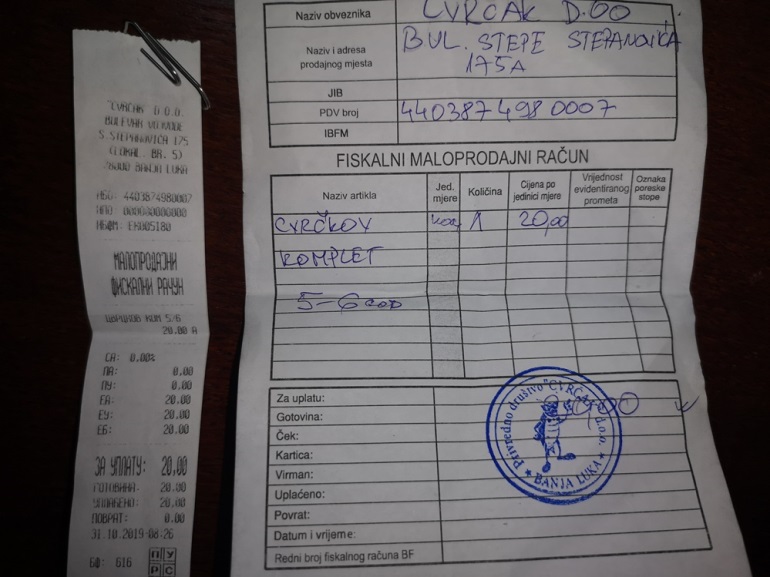 CVRČAK D.O.O.
BULEVAR VOJVODE
S.STEPANOVIĆA 175
(LOKAL BR. 5)
78000 BANJA LUKA
4403874980007
000000000000
МАЛОПРОДАЈНИ
ФИСКАЛНИ РАЧУН
5/6
20.00 А
СА: 0.00%
ПА: 0.00
ПУ: 0.00
ЕА: 20.00
ЕУ: 20.00
ЕБ: 20.00
ЗА УПЛАТУ: 20.00
ГОТОВИНА: 20.00
УПЛАЋЕНО: 20.00
ПОВРАТ: 0.00
31.10.2019-08:26
БФ: 616
ПУ
РС
Naziv obveznika CVRČAK D.OO
Naziv i adresa prodajnog mjesta
BUL. STEPE STEPANOVIĆA
175A
JIB
PDV broj 4403874980007
IBFM
FISKALNI MALOPRODAJNI RAČUN
Naziv artikla Jed. mjere Količina Cijena po jedinici mjere Vrijednost evidentiranog prometa Oznaka poreske stope
CVRČKOV kom 1 20,00
KOMPLET
5-6 god
Za uplatu:
Gotovina:
Ček:
Kartica:
Virman:
Uplaćeno:
Povrat:
Datum i vrijeme:
Redni broj fiskalnog računa BF
Privredno društvo "CVRČAK" d.o.o.
BANJA LUKA